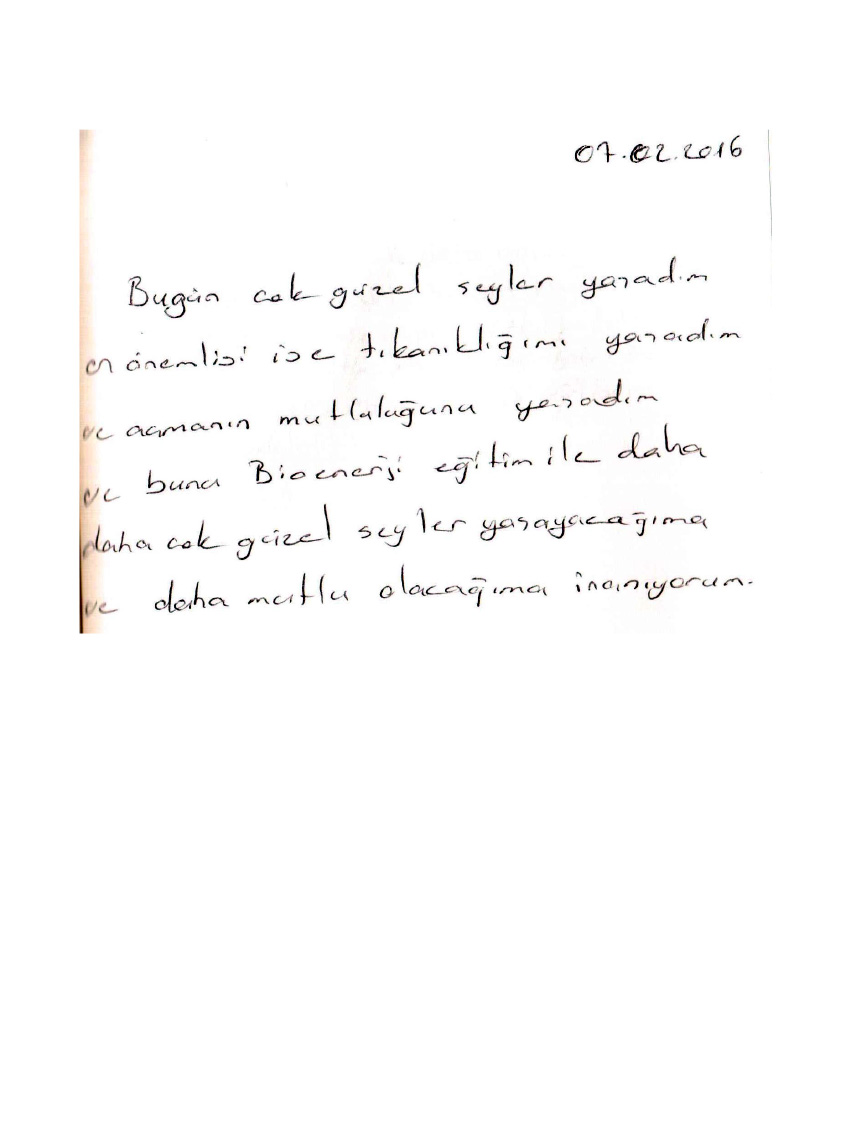 07.02.2016
Bugün cok güzel seyler yasadım
en önemlisi ise tıkanıklığımı yasadım
ve acmanın mutluluğunu yasadım
ve bunu Bioenerji eğitim ile daha
daha cok güzel seyler yasayacağıma
ve daha mutlu olacağıma inanıyorum.